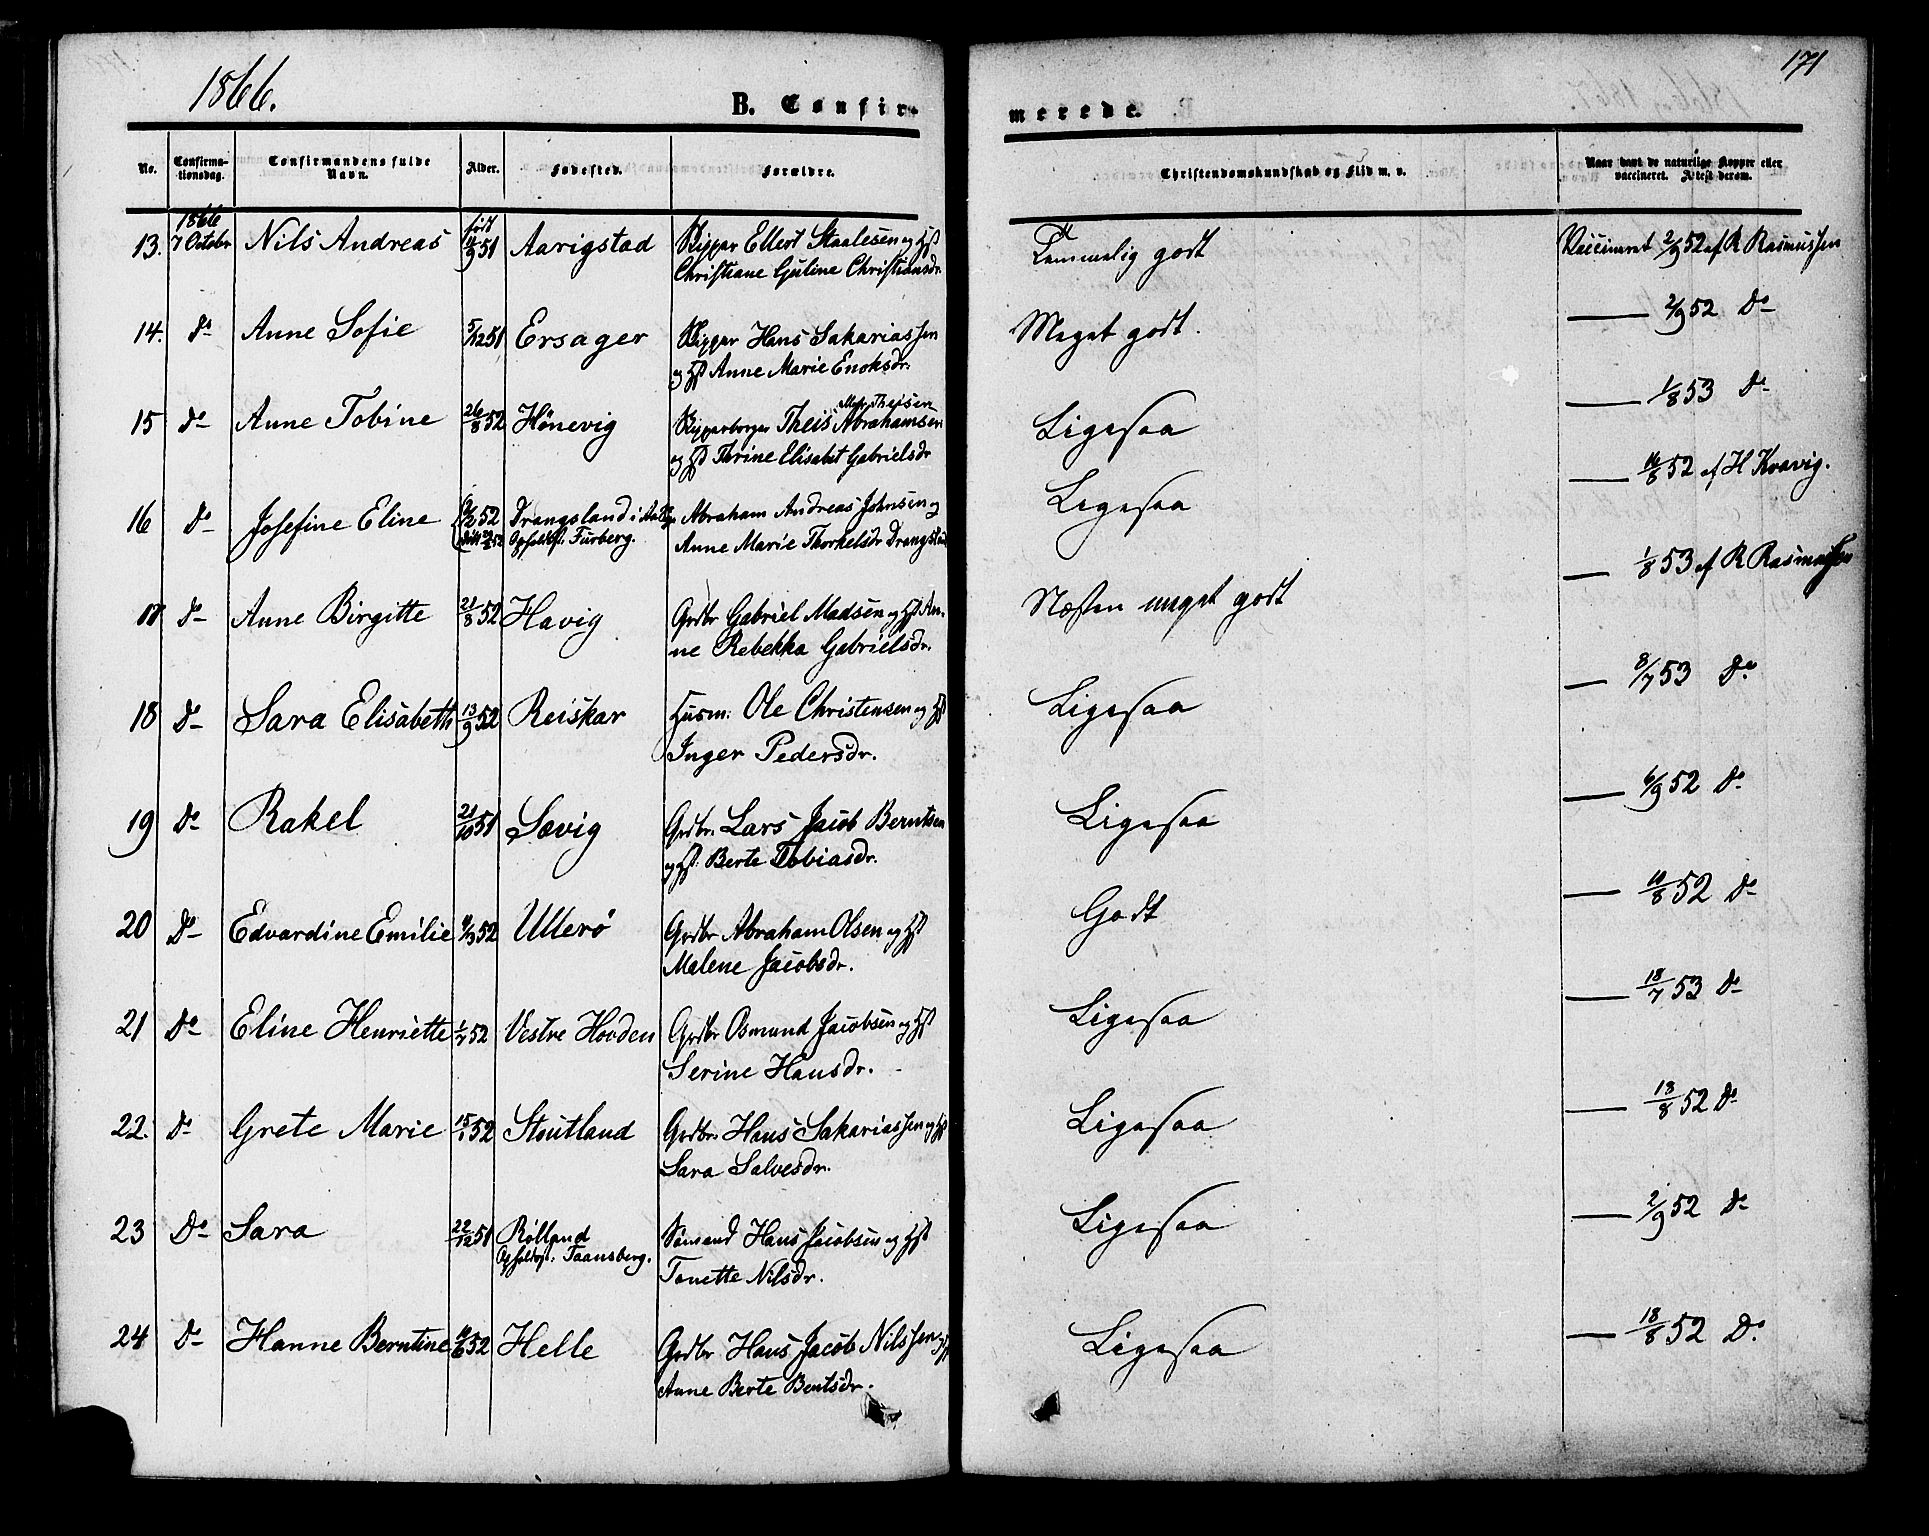 1866.
171
B. Confir-
merede.
No.
Confirma-
tionsdag.
Confirmandens fulde
Navn.
Alder.
Fødested.
Forældre.
Christendomskundskab og Flid m. v.
Naar havt de naturlige Kopper eller
vaccineret. Attest derom.
13. 1866 7 Octobr Nils Andreas født 9 51 Aarigstad Skipper Ellert Staalesen og Hst
Christiane Guline Christiansdr.
Temmelig godt Vaccineret 2/9 52 af R Rasmussen
14. Do Anne Sofie 5/12 51 Ersager Skipper Hans Sakariassen
og Hst Anne Marie Enoksdr.
Meget godt. — 2/9 52 Do
15 Do Anne Tobine 26/8 52 Hönevig Skipperborger Theis Abrahamsen
og Hst Thrine Elisabet Gabrielsdr
Ligesaa — 1/8 53 Do
16 Do Josefine Eline 52 Drangsland i Abraham Andreas Johnsen og
Opholdst. Furberg. Anne Marie Thorkelsdr
Ligesaa — 16/8 52 af H Kvavig.
17 Do Anne Birgitte 21/8 52 Havig Grdbr Gabriel Madsen og Hst An-
ne Rebekka Gabrielsdr.
Næsten meget godt — 1/8 53 af R Rasmussen
18 Do Sara Elisabeth 13/9 52 Reiskar Husm: Ole Christensen og Hst
Inger Pedersdr.
Ligesaa — 8/7 53 Do
19 Do Rakel 21/10 51 Sævig Grdbr. Lars Jacob Berntsen
og Hst. Berte Tobiasdr.
Ligesaa — 6/9 52 Do
20 Do Edvardine Emilie 3 52 Ullerö Grdbr Abraham Olsen og Hst
Malene Jacobsdr.
Godt — 10/8 52 Do
21 Do Eline Henriette 1/7 52 Vestre Hovden Grdbr Osmund Jacobsen og Hst
Serine Hansdr.
Ligesaa — 18/7 53 Do
22. Do Grete Marie 15/1 52 Stoutland Grdbr. Hans Sakariassen og Hst
Sara Salvesdr.
Ligesaa — 13/8 52 Do
23 Do Sara 22/12 51 Rölland Sömand Hans Jacobsen og Hst
Opholdst. Taansberg. Tonette Nilsdr.
Ligesaa — 2/9 52 Do
24 Do Hanne Berntine 52 Helle Grdbr Hans Jacob Nilssen og Hst
Anne Berte Bentsdr.
Ligesaa — 18/8 52 Do.